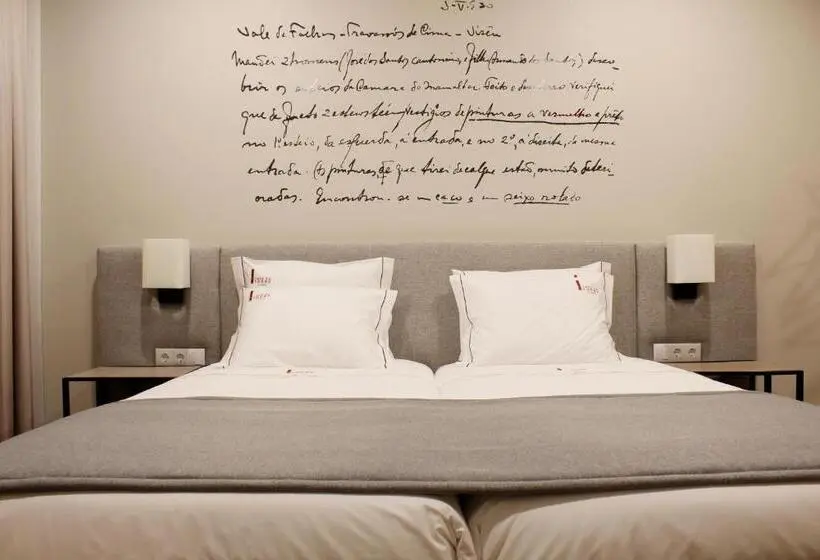 3-V-930
Vale de Fachas - Travassós de Cima - Viseu
Mandei 2 homens (José dos Santos cantoneiro, e filho Armando dos Santos) desco_
brir os esteios da Camara e do mamalhar. Feito o verifiquei
que de facto 2 esteios têem vestigios de pinturas a vermelho e preto
no 1º esteio, da esquerda, á entrada, e no 2º, á direita, da mesma
entrada. (As pinturas, de que tirei decalque estão, muito deteri_
oradas. Encontrou-se um caco e um seixo rolado
i
i
i